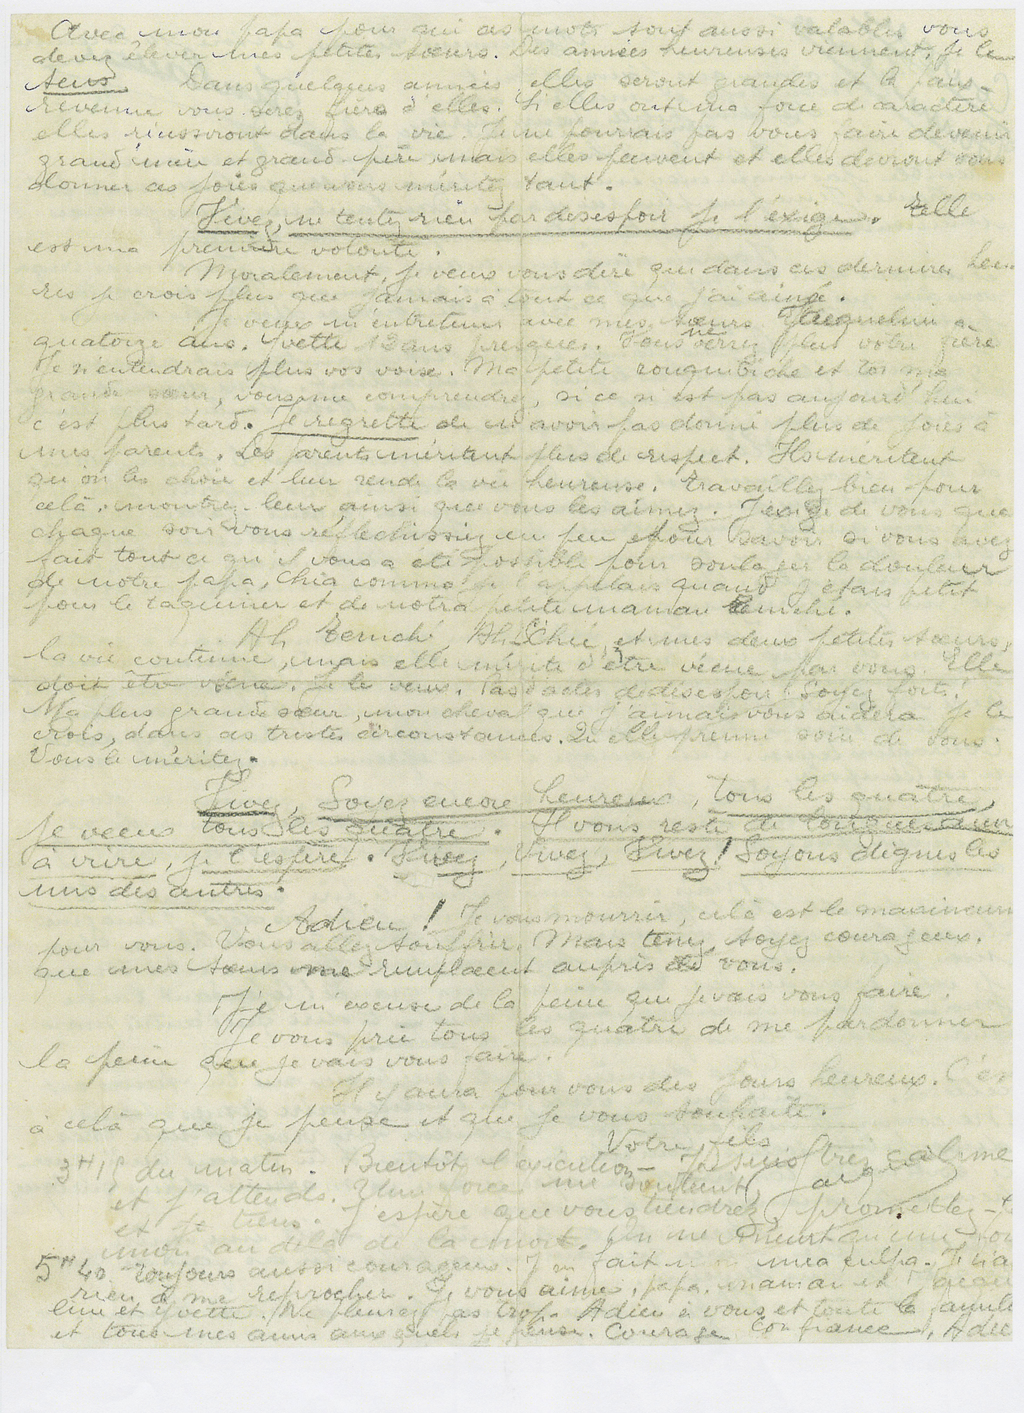 Avec mon papa pour qui ces mots sont aussi valables vous
devez élever mes petites sœurs. Des années heureuses viennent, je le
sens. Dans quelques années elles seront grandes et la paix
revenue vous serez fiers d'elles. Si elles ont ma force de caractère
elles réussiront dans la vie. Je ne pourrais pas vous faire devenir
grand'mère et grand-père, mais elles peuvent et elles devront vous
donner ces joies que vous méritez tant.
Vivez, ne tentez rien par désespoir je l'éxige. Telle
est ma première volonté.
Moralement, je veux vous dire que dans ces dernières heu-
res je crois plus que jamais à tout ce que j'ai aimé.
Je veux m'entretenir avec mes sœurs. Jacqueline a
quatorze ans. Yvette 13 ans presques. Vous ne verrez plus votre frère
Je n'entendrais plus vos voix. Ma petite rouquibiche et toi, ma
grande sœur, vous me comprendrez, si ce n'est pas aujourd'hui
c'est plus tard. Je regrette de n'avoir pas donné plus de joies à
mes parents. Les parents méritent plus de respect. Ils méritent
qu'on les choie et leur rende la vie heureuse. Travaillez bien pour
celà, montrez-leur ainsi que vous les aimez. J'exige de vous que
chaque soir vous réflechissiez un peu pour savoir si vous avez
fait tout ce qu'il vous a été possible pour soulager la douleur
de notre papa, Chia comme je l'appelais quand j'étais petit
pour le taquiner et de notre petite maman Ternché.
Ah Ternché, Ah Chié, et mes deux petites sœurs,
la vie continue, mais elle mérite d'être vécue par vous. Elle
doit être vécue. Je le veux. Pas d'actes de désespoir! Soyez forts!
Ma plus grande sœur, mon cheval que j'aimais vous aidera je le
crois, dans ces tristes circonstances. Qu'elle prenne soin de vous.
Vous le méritez.
Vivez, Soyez encore heureux, tous les quatre,
je veux tous les quatre. Il vous reste de longues
à vivre, je l'espère. Vivez, Vivez, Vivez! Soyons dignes les
uns des autres.
Adieu! Je vais mourrir, celà est le maximum
pour vous. Vous allez souffrir. Mais tenez, soyez courageux.
que mes sœurs me remplacent auprès de vous.
Je m'excuse de la peine que je vais vous faire.
Je vous prie tous les quatre de me pardonner
la peine que je vais vous faire.
Il y aura pour vous des jours heureux. C'est
à celà que je pense et que je vous souhaite.
Votre fils
3H15 du matin. Bientôt l'exécution – Je suis très calme
et j'attends. Une force me soutient
et je tiens. J'espère que vous tiendrez, promettez-
au delà de la mort. On ne meurt
5H40 Toujours aussi courageux. J'ai fait mon mea culpa. Je n'ai
rien à me reprocher. Je vous aime, papa, maman et Jacque
line et Yvette. Ne pleurez pas trop. Adieu à vous et toute la famille
et tous mes amis auxquels je pense. Courage Confiance, Adieu